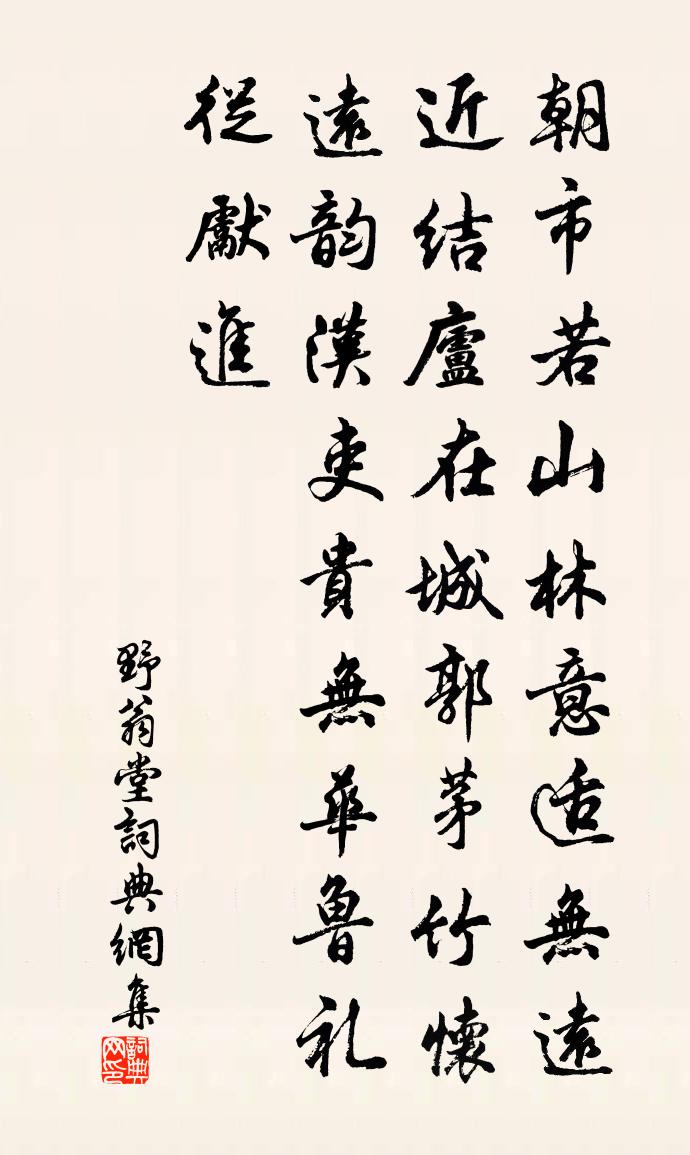 朝市若山林意适無遠
近結廬在城郭茅竹懷
遠韵漢吏貴無華魯礼
從獻進
野翁堂詞典網集
詞典
网印